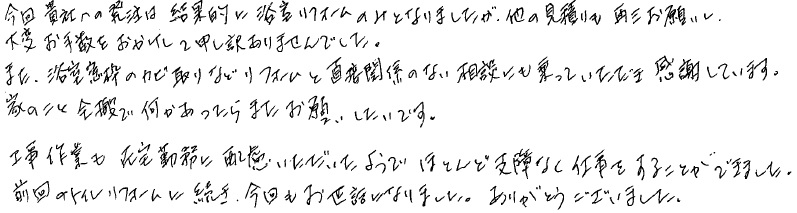 今回貴社への発注は結果的に浴室リフォームのみとなりましたが、他の見積りも再三お願いし、
大変お手数をおかけして申し訳ありませんでした。
また、浴室窓枠のカビ取りなどリフォームと直接関係のない相談にも乗っていただき感謝しています。
家のこと全搬で何かあったらまたお願いしたいです。
工事作業も在宅勤務に配慮いただいたようでほとんど支障なく仕事をすることができました。
前回のトイレリフォームに続き、今回もお世話になりました。ありがとうございました。